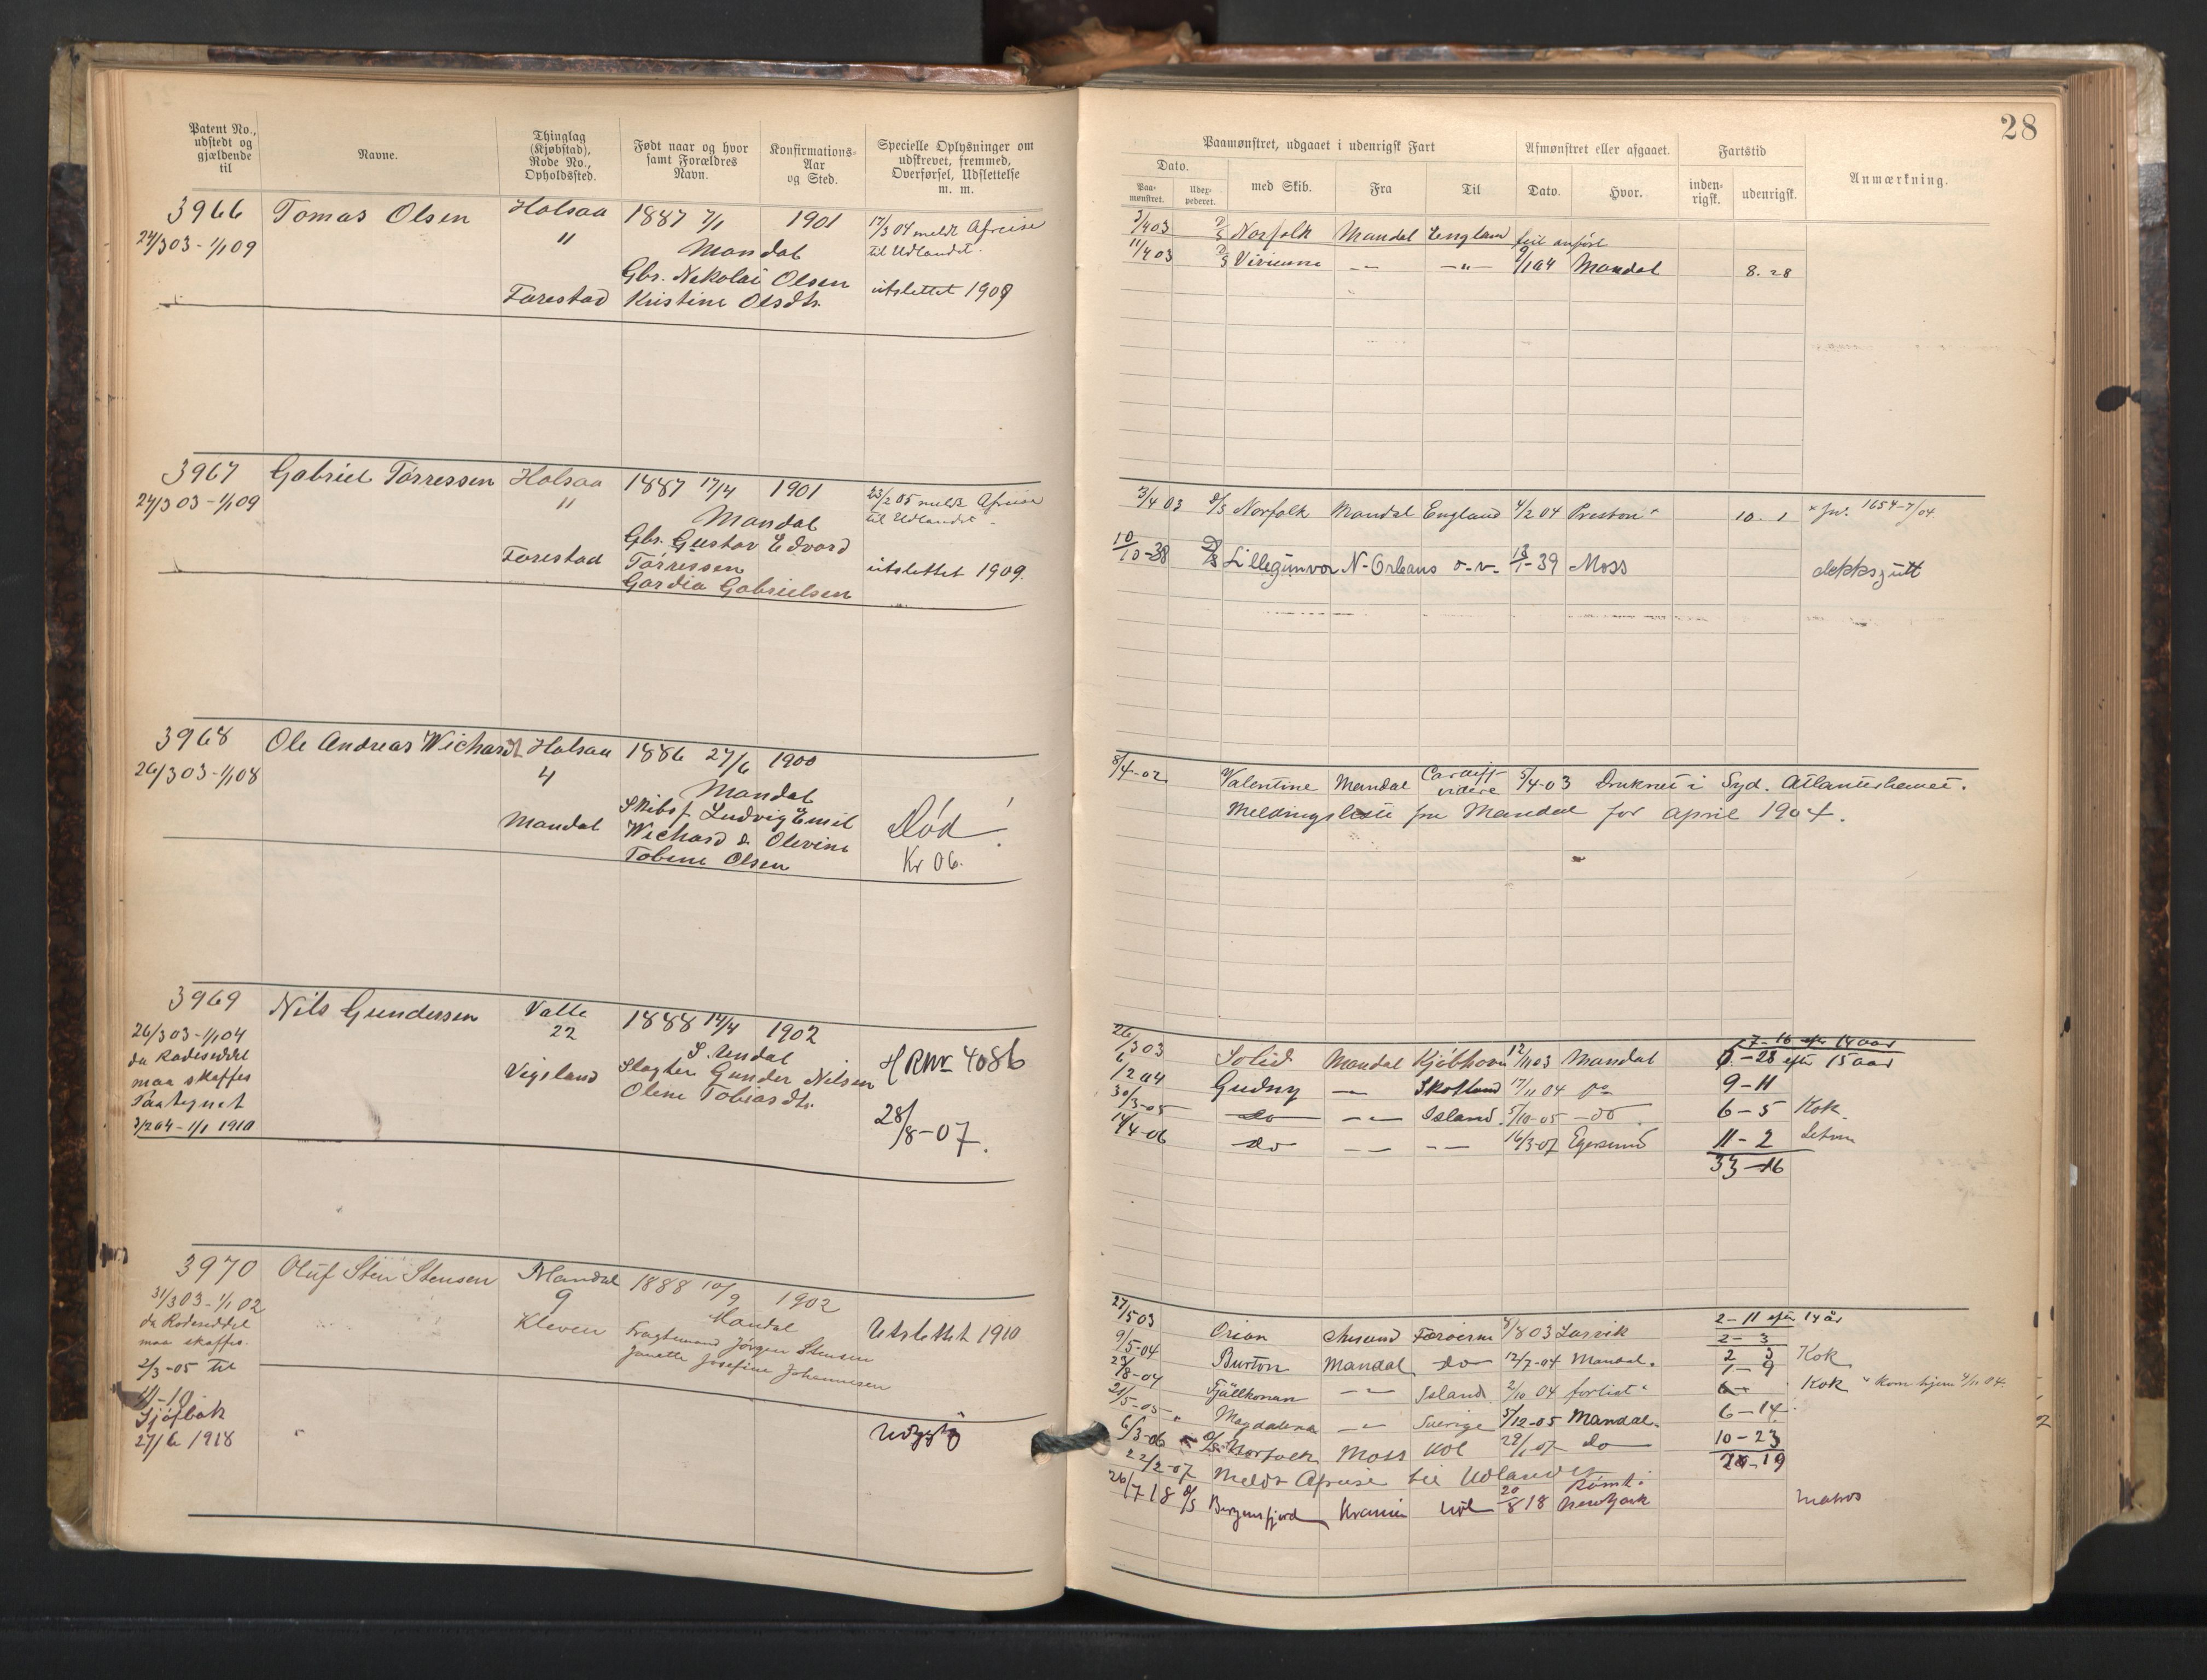 28
Patent No., udstedt og gjældende til
Navne.
Thinglag (Kjøbstad), Rode No., Opholdssted.
Født naar og hvor samt Forældres Navn.
Konfirmations-Aar og Sted.
Specielle Oplysninger om udskrevet, fremmed, Overførsel, Udslettelse m. m.
Paamønstret, udgaaet i udenrigsk Fart
Afmønstret eller afgaaet.
Fartstid
Anmærkning.
Dato.
Paa-mønstret.
Uder-pederet.
med Skib.
Fra
Til
Dato.
Hvor.
inden-rigsk.
udenrigsk.
3966 Tomas Olsen Halsaa 1887 7/1 1901 17/3 04 meldt Afreise
24/3 03 - 1/1 09 " Mandal til Udlandet.
Gbr. Nekolai Olsen
Farestad Kristine Olsdtr. utslettet 1909
3/4 03 D/S Norfolk Mandal England feil anført
11/4 03 D/S Vivienne - " - - " - 9/1 04 Mandal 8. 28
3967 Gabriel Tørressen Halsaa 1887 17/4 1901 23/2 05 meldt Afreise
24/3 03 - 1/1 09 " Mandal til Udlandet
Gbr. Gustav Edvard
Farestad Tørressen utslettet 1909.
Gardia Gabrielsen
3/4 03 D/S Norfolk Mandal England 4/2 04 Preston 10. 1 1654-7/04
10/10-38 D/S Lillegunvor N-Orleans o.v. 13/1-39 Moss dekksgutt
3968 Ole Andreas Wichard Halsaa 1886 27/6 1900
26/3 03 - 1/1 08 4 Mandal
Skibsf. Ludvig Emil
Mandal Wichard & Olevine Død!
Tobine Olsen Kr 06.
8/4-02 Valentine Mandal Cardiff videre 5/4-03 Druknet i Syd. Atlanterhavet.
Meldingsliste fra Mandal for April 1904.
3969 Nils Gundersen Valle 1888 14/4 1902
26/3 03 - 1/1 04 22 S. Undal
da Rodeseddel Vigeland Slagter Gunder Nilsen HRNr 4086
maa skaffes Oline Tobiasdtr.
Paategnet 28/8-07.
3/2 04 - 1/1 1910
7-16 efter 14 aar
26/3 03 Solid Mandal Kjøbhavn 12/11 03 Mandal 0-28 efter 15 aar
1/2 04 Gudny - " - Skotland 17/11 04 do 9-11
30/3-05 do - " - Island 5/10-05 do 6-5 Kok
14/4-06 do - " - - " - 16/3-07 Egersund 11-2 Letm
33-16
3970 Oluf Sten Stensen Mandal 1888 10/9 1902
31/3 03 - 1/1 02 9 Mandal
da Rodeseddel Kleven Fragtemand Jørgen Stensen Utslettet 1910
maa skaffes. Janette Josefine Johannesen
2/3-05 til
1/1-10
Sjøfbok
27/6 1918
2-11 efter 14 år
27/5 03 Orion Færøerne 8/8 03 Larvik 2-3
9/5-04 Burton Mandal do 12/7-04 Mandal. 2 3 Kok
23/8-04 Fjällkonan - " - Island 2/10 04 forlist 1-9 Kok kom hjem 4/11 04.
21/5-05 Magdalena - " - Sverige 5/12-05 Mandal. 6-14
6/3-06 D/S Norfolk Moss Kol 29/1-07 do 10-23
22/2-07 Meldt Afreise til Udlandet 20-19
26/7 18 D/S Bergensfjord Krania 20/8 18 Rømt i New York Matros